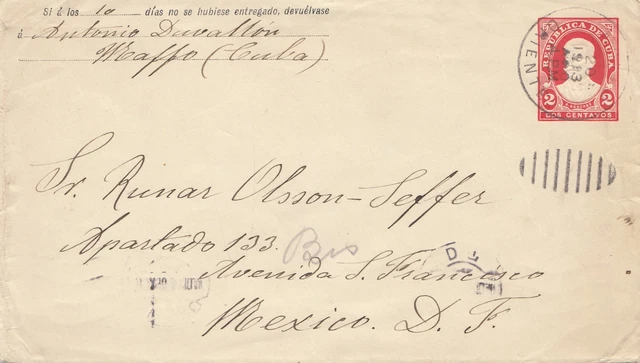 Si á los 10 días no se hubiese entregado, devuélvase
á Antonio Davallón
Maffo (Cuba)
REPUBLICA DE CUBA
2 2
DOS CENTAVOS
1913
ORIENTE
Sr. Runar Olsson-Seffer
Apartado 133. Bis
Avenida S. Francisco
Mexico. D. F.